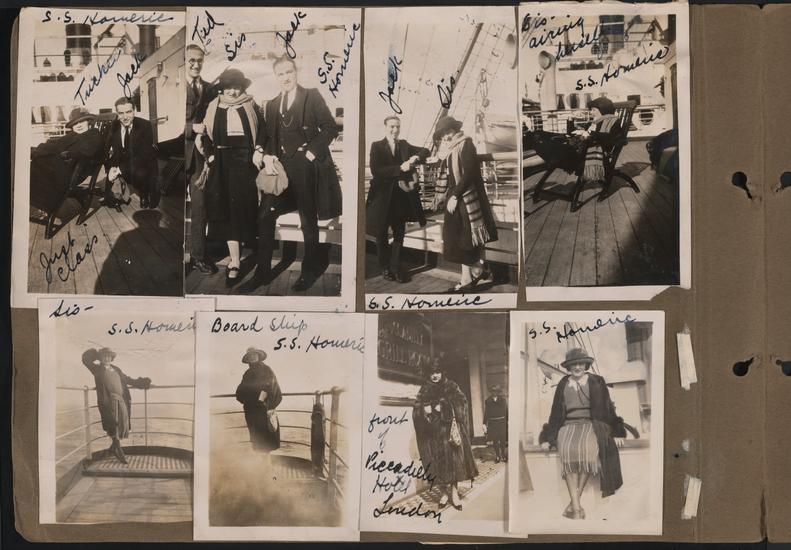 S.S. Homeric
Tucker
Jack
Just
Class
Ted
Sis
Jack
S.S.
Homeric
Jack
Sis
S.S. Homeric
Sis-
airing
herself
S.S. Homeric
Sis-
S.S. Homeric
Board Ship
S.S. Homeric
GRILL ROOM
front
of
Piccadilly
Hotel
London
S.S. Homeric